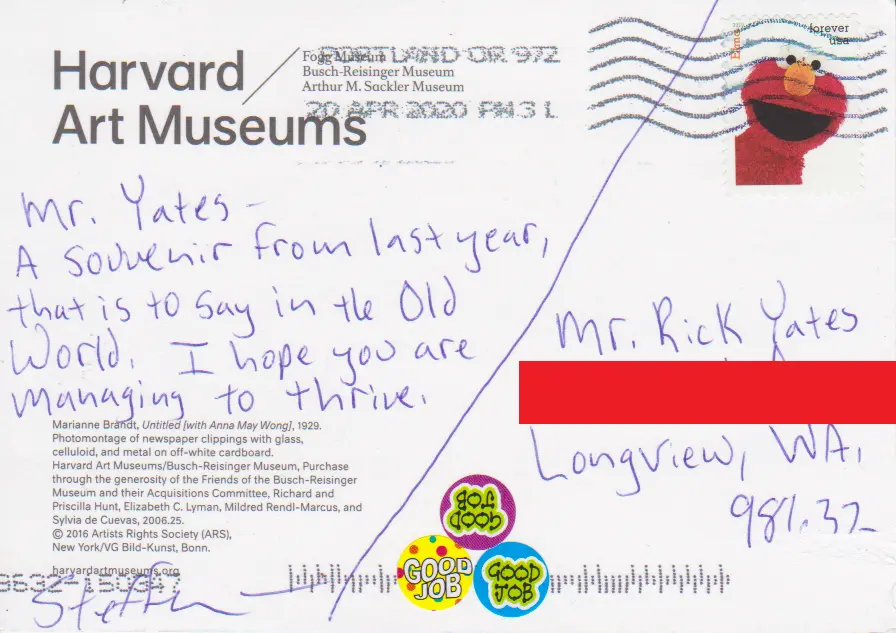 Harvard
Art Museums
Fogg Museum
Busch-Reisinger Museum
Arthur M. Sackler Museum
PORTLAND OR 972
20 APR 2020 PM 3 L
Elmo
forever
usa
Mr. Yates -
A souvenir from last year,
that is to say in the Old
World. I hope you are
managing to thrive.
Mr. Rick Yates
Longview, WA.
98632
Marianne Brandt, Untitled [with Anna May Wong], 1929.
Photomontage of newspaper clippings with glass,
celluloid, and metal on off-white cardboard.
Harvard Art Museums/Busch-Reisinger Museum, Purchase
through the generosity of the Friends of the Busch-Reisinger
Museum and their Acquisitions Committee, Richard and
Priscilla Hunt, Elizabeth C. Lyman, Mildred Rendl-Marcus, and
Sylvia de Cuevas, 2006.25.
© 2016 Artists Rights Society (ARS),
New York/VG Bild-Kunst, Bonn.
harvardartmuseums.org
GOOD
JOB
GOOD
JOB
GOOD
JOB